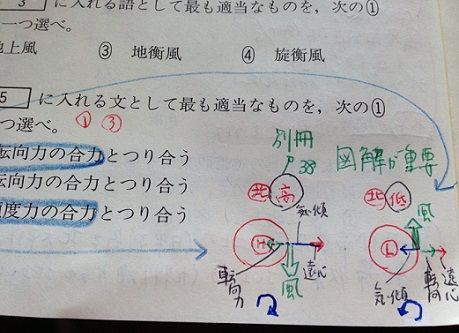 3 に入れる語として最も適当なものを,次の①
一つ選べ。
地上風 ③ 地衡風 ④ 旋衡風
5 に入れる文として最も適当なものを,次の①
つ選べ。 ① ③
転向力の合力とつり合う
転向力の合力とつり合う
傾度力の合力とつり合う
別冊
P38
図解が重要
北 高
北 低
気傾
風
H
L
転向力
風
遠心
気傾
転向
遠心